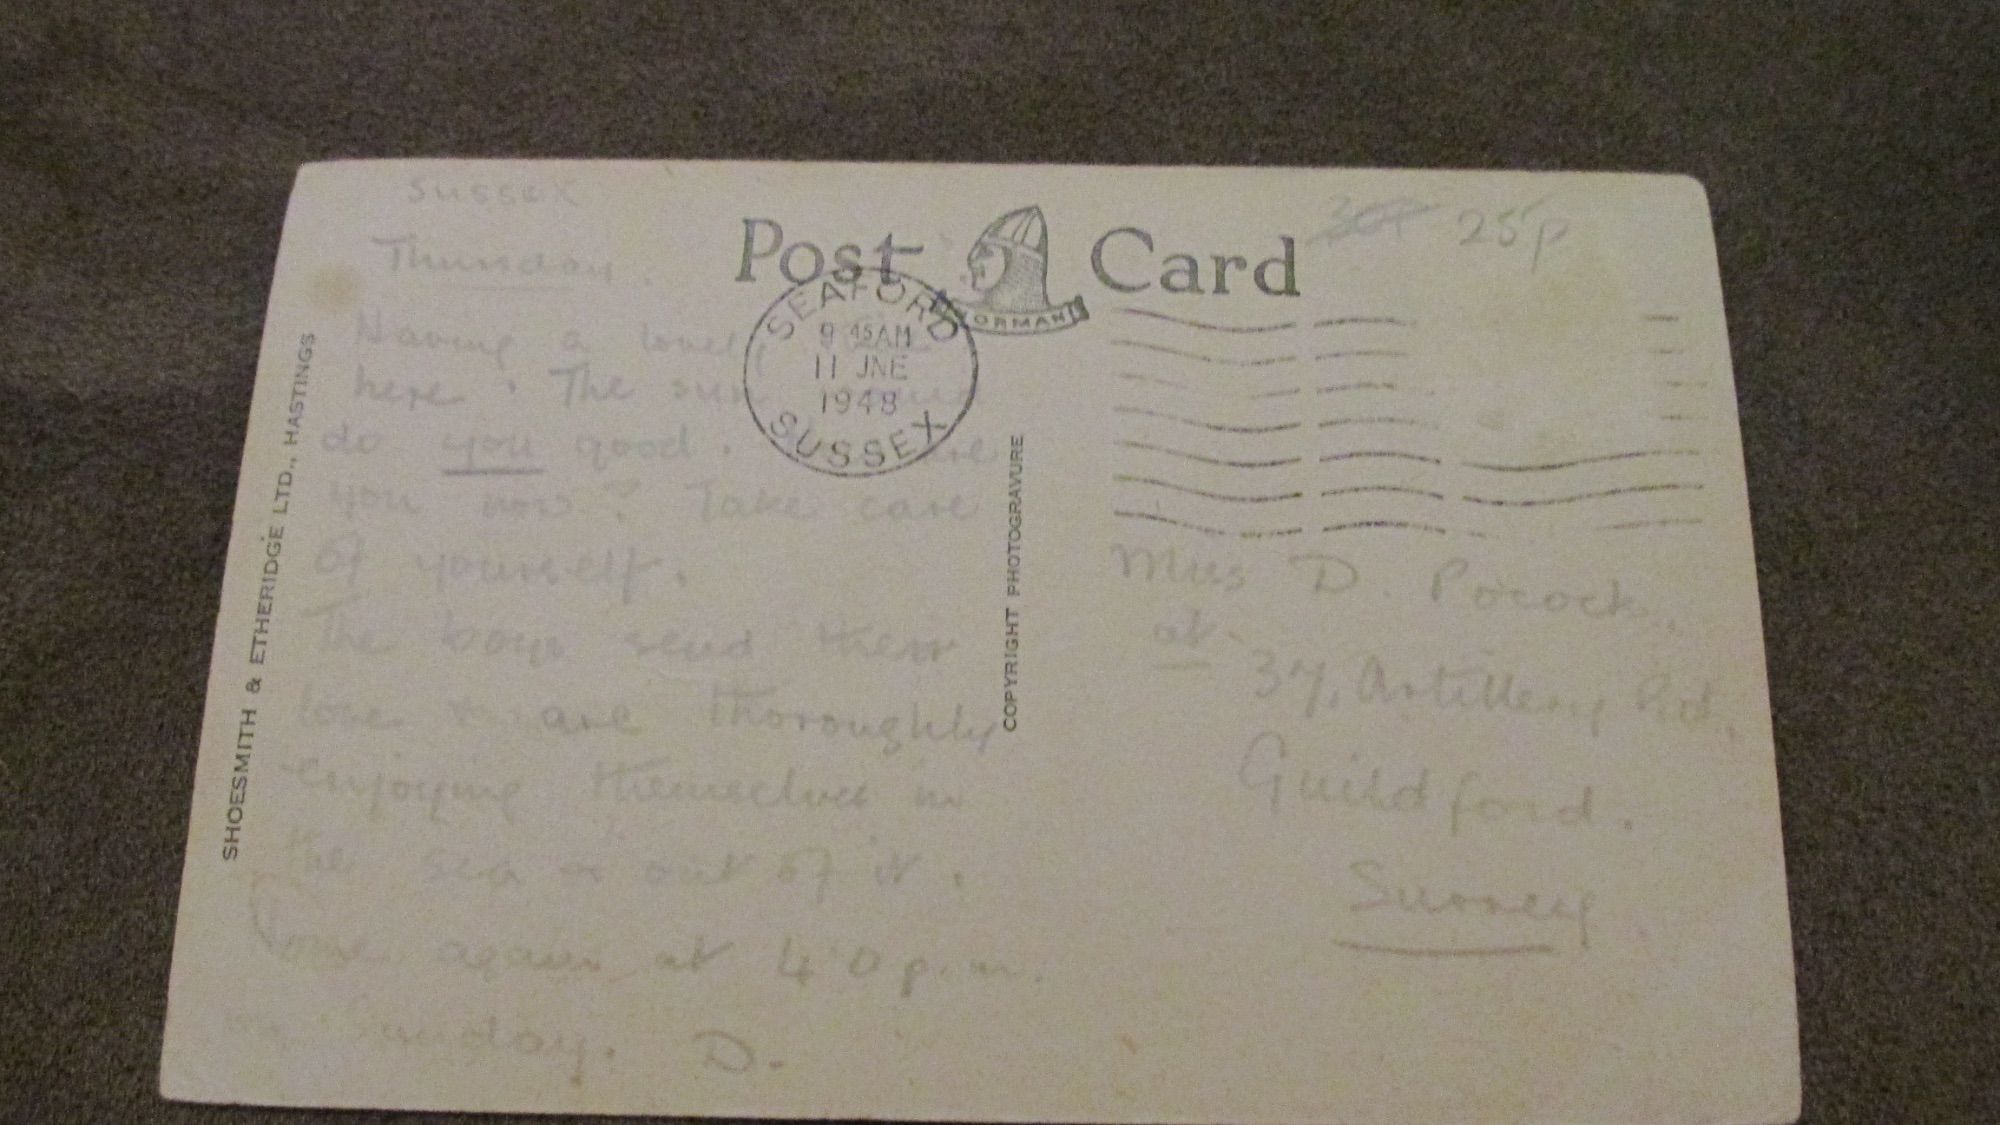 Post Card
NORMAN
SEAFORD
9 45AM
11 JNE
1948
SUSSEX
30p 25p
SHOESMITH & ETHERIDGE LTD., HASTINGS
COPYRIGHT PHOTOGRAVURE
Sussex
Thursday.
Having a lovely
here. The sun
do you good.
you now? Take care
of yourself.
The boys send their
love & are thoroughly
enjoying themselves in
the sea & out of it.
Home again at 4.0 p.m.
on Sunday. D.
Miss D. Pocock,
at
37, Artillery Rd,
Guildford.
Surrey